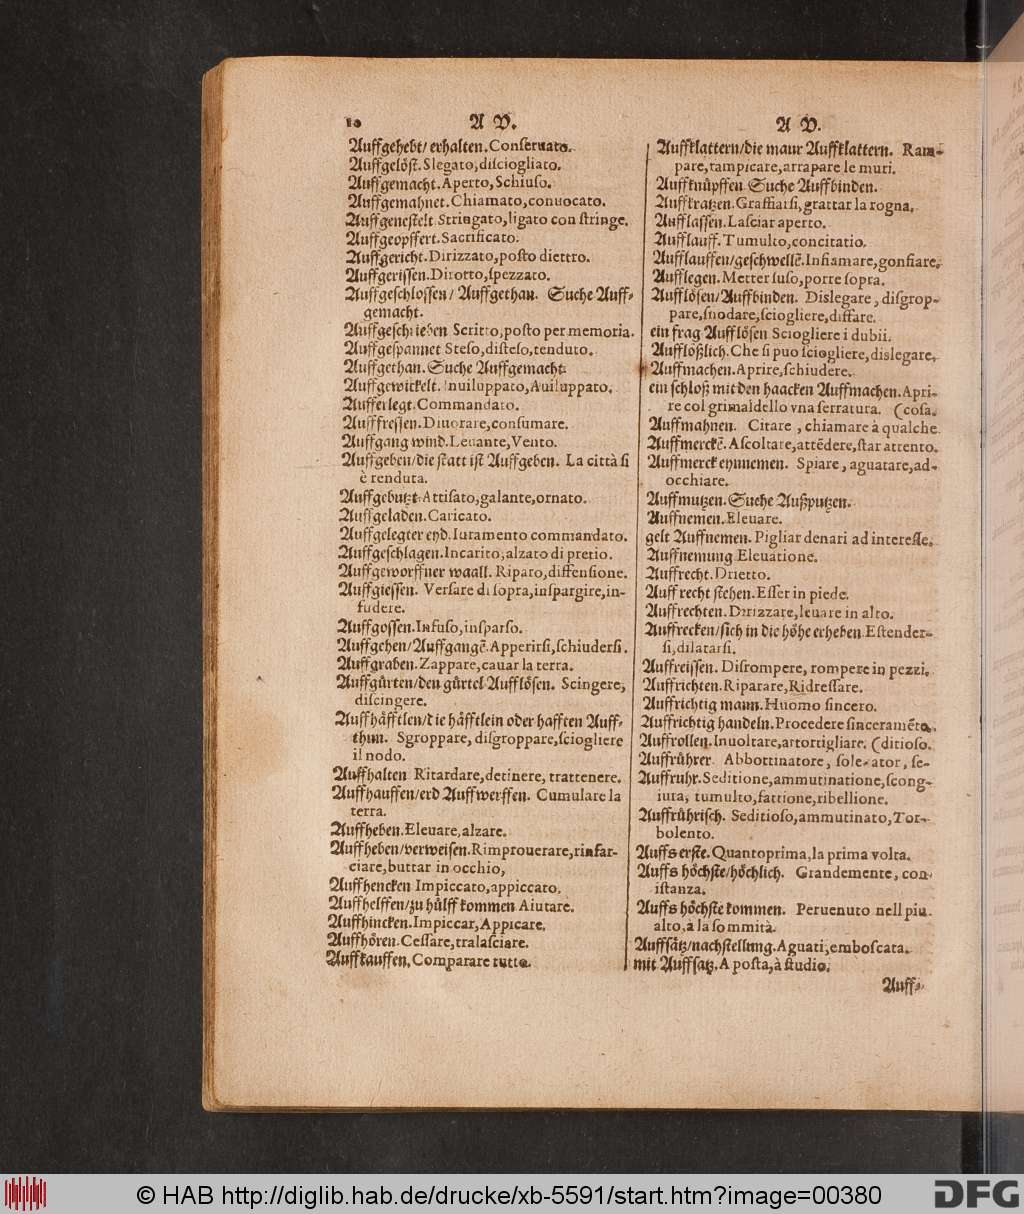 10 A V.
Auffgehebt/ erhalten. Conſeruato.
Auffgelöſt. Slegato, diſciogliato.
Auffgemacht. Aperto, Schiuſo.
Auffgemahnet. Chiamato, conuocato.
Auffgeneſtelt. Stringato, ligato con ſtringe.
Auffgeopffert. Sacrificato.
Auffgericht. Dirizzato, poſto diettro.
Auffgeriſſen. Dirotto, ſpezzato.
Auffgeſchloſſen/ Auffgethan. Suche Auff-
gemacht.
Auffgeſchrieben Scritto, poſto per memoria.
Auffgeſpannet Steſo, diſteſo, tenduto.
Auffgethan. Suche Auffgemacht.
Auffgewickelt. Inuiluppato, Auiluppato.
Aufferlegt. Commandato.
Aufffreſſen. Diuorare, conſumare.
Auffgang wind. Leuante, Vento.
Auffgeben/ die ſtatt iſt Auffgeben. La città ſi
è renduta.
Auffgebutzt. Attiſato, galante, ornato.
Auffgeladen. Caricato.
Auffgelegter eyd. Iuramento commandato.
Auffgeſchlagen. Incarito, alzato di pretio.
Auffgeworffner waall. Riparo, diffenſione.
Auffgieſſen. Verſare di ſopra, inſpargire, in-
fudere.
Auffgoſſen. Infuſo, inſparſo.
Auffgehen/ Auffgangẽ. Apperirſi, ſchiuderſi.
Auffgraben. Zappare, cauar la terra.
Auffgürten/ den gürtel Aufflöſen. Scingere,
diſcingere.
Auffhäfftlen/ die häfftlein oder hafften Auff-
thun. Sgroppare, diſgroppare, ſciogliere
il nodo.
Auffhalten Ritardare, detinere, trattenere.
Auffhauffen/ erd Auffwerffen. Cumulare la
terra.
Auffheben. Eleuare, alzare.
Auffheben/ verweiſen. Rimprouerare, rinfar-
ciare, buttar in occhio,
Auffhencken Impiccato, appiccato.
Auffhelffen/ zu hülff kommen Aiutare.
Auffhincken. Impiccar, Appicare.
Auffhören. Ceſſare, tralaſciare.
Auffkauffen. Comparare tutto.
A V.
Auffklattern/ die maur Auffklattern. Ram-
pare, rampicare, arrapare le muri.
Auffknüpffen Suche Auffbinden.
Auffkratzen. Graffiatſi, grattar la rogna.
Aufflaſſen. Laſciar aperto.
Aufflauff. Tumulto, concitatio.
Aufflauffen/ geſchwellẽ. Infiamare, gonfiare.
Aufflegen. Metter ſuſo, porre ſopra.
Aufflöſen/ Auffbinden. Dislegare, diſgrop-
pare, ſnodare, ſciogliere, disfare.
ein frag Aufflöſen Sciogliere i dubii.
Aufflößlich. Che ſi puo ſciogliere, dislegare.
Auffmachen. Aprire, ſchiudere.
ein ſchloß mit den haacken Auffmachen. Apri-
re col grimaldello vna ſerratura. (coſa.
Auffmahnen. Citare, chiamare à qualche
Auffmerckẽ. Aſcoltare, attẽdere, ſtar attento.
Auffmerck eynnemen. Spiare, aguatare, ad-
occhiare.
Auffmutzen. Suche Außputzen.
Auffnemen. Eleuare.
gelt Auffnemen. Pigliar denari ad intereſſe.
Auffnemung Eleuatione.
Auffrecht. Drietto.
Auff recht ſtehen. Eſſer in piede.
Auffrechten. Dirizzare, leuare in alto.
Auffrecken/ ſich in die höhe erheben. Eſtender-
ſi, dilatarſi.
Auffreiſſen. Diſrompere, rompere in pezzi.
Auffrichten. Riparare, Ridreſſare.
Auffrichtig mann. Huomo ſincero.
Auffrichtig handeln. Procedere ſinceramẽte.
Auffrollen. Inuoltare, attortigliare. (ditioſo.
Auffrührer. Abbottinatore, ſoleuator, ſe-
Auffruhr. Seditione, ammutinatione, ſcong-
iura, tumulto, fattione, ribellione.
Auffrühriſch. Seditioſo, ammutinato, Tor-
bolento.
Auffs erſte. Quantoprima, la prima volta.
Auffs höchſte/ höchlich. Grandemente, con
iſtanza.
Auffs höchſte kommen. Peruenuto nell piu
alto, à la ſommità.
Auffſätz/ nachſtellung. Aguati, emboſcata.
mit Auffſatz. A poſta, à ſtudio.
Auff-
© HAB http://diglib.hab.de/drucke/xb-5591/start.htm?image=00380
DFG